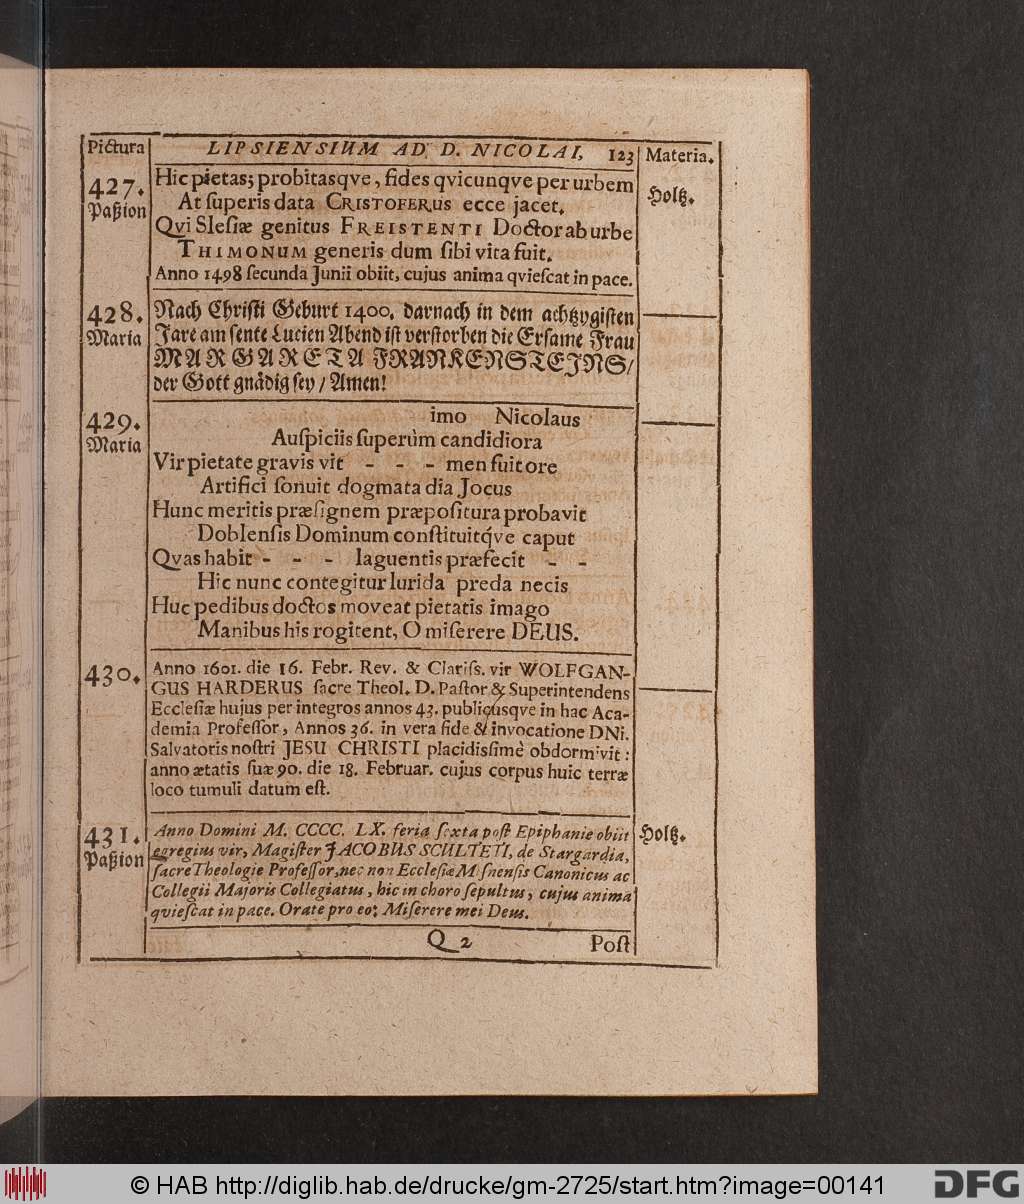 Pictura LIPSIENSIUM AD D. NICOLAI, 123 Materia.
427. Paßion
Hic pietas; probitasqve, fides qvicunqve per urbem
At superis data CRISTOFERus ecce jacet.
Qvi Slesiæ genitus FREISTENTI Doctor ab urbe
THIMONUM generis dum sibi vita fuit.
Anno 1498 secunda Junii obiit, cujus anima qviescat in pace.
Holtz.
428. Maria
Nach Christi Geburt 1400. darnach in dem achtzygisten
Jare am sente Lucien Abend ist verstorben die Ersame Frau
MARGARETA FRANKENSTEJNS/
der Gott gnådig sey / Amen!
429. Maria
imo Nicolaus
Auspiciis superùm candidiora
Vir pietate gravis vit - - - men fuit ore
Artifici sonuit dogmata dia Jocus
Hunc meritis præsignem præpositura probavit
Doblensis Dominum constituitq́ve caput
Qvas habit - - - laguentis præfecit - -
Hic nunc contegitur lurida preda necis
Huc pedibus doctos moveat pietatis imago
Manibus his rogitent, O miserere DEUS.
430.
Anno 1601. die 16. Febr. Rev. & Clariss. vir WOLFGAN-
GUS HARDERUS sacre Theol. D. Pastor & Superintendens
Ecclesiæ hujus per integros annos 43. publicusqve in hac Aca-
demia Professor, Annos 36. in vera fide & invocatione DNi.
Salvatoris nostri JESU CHRISTI placidissimè obdormivit:
anno ætatis suæ 90. die 18. Februar. cujus corpus huic terræ
loco tumuli datum est.
431. Paßion
Anno Domini M. CCCC. LX. feria sexta post Epiphanie obiit
egregius vir, Magister JACOBUS SCULTETI, de Stargardia,
sacre Theologie Professor, nec non Ecclesiæ Misnensis Canonicus ac
Collegii Majoris Collegiatus, hic in choro sepultus, cujus anima
qviescat in pace. Orate pro eo; Miserere mei Deus.
Holtz.
Q 2 Post
© HAB http://diglib.hab.de/drucke/gm-2725/start.htm?image=00141
DFG